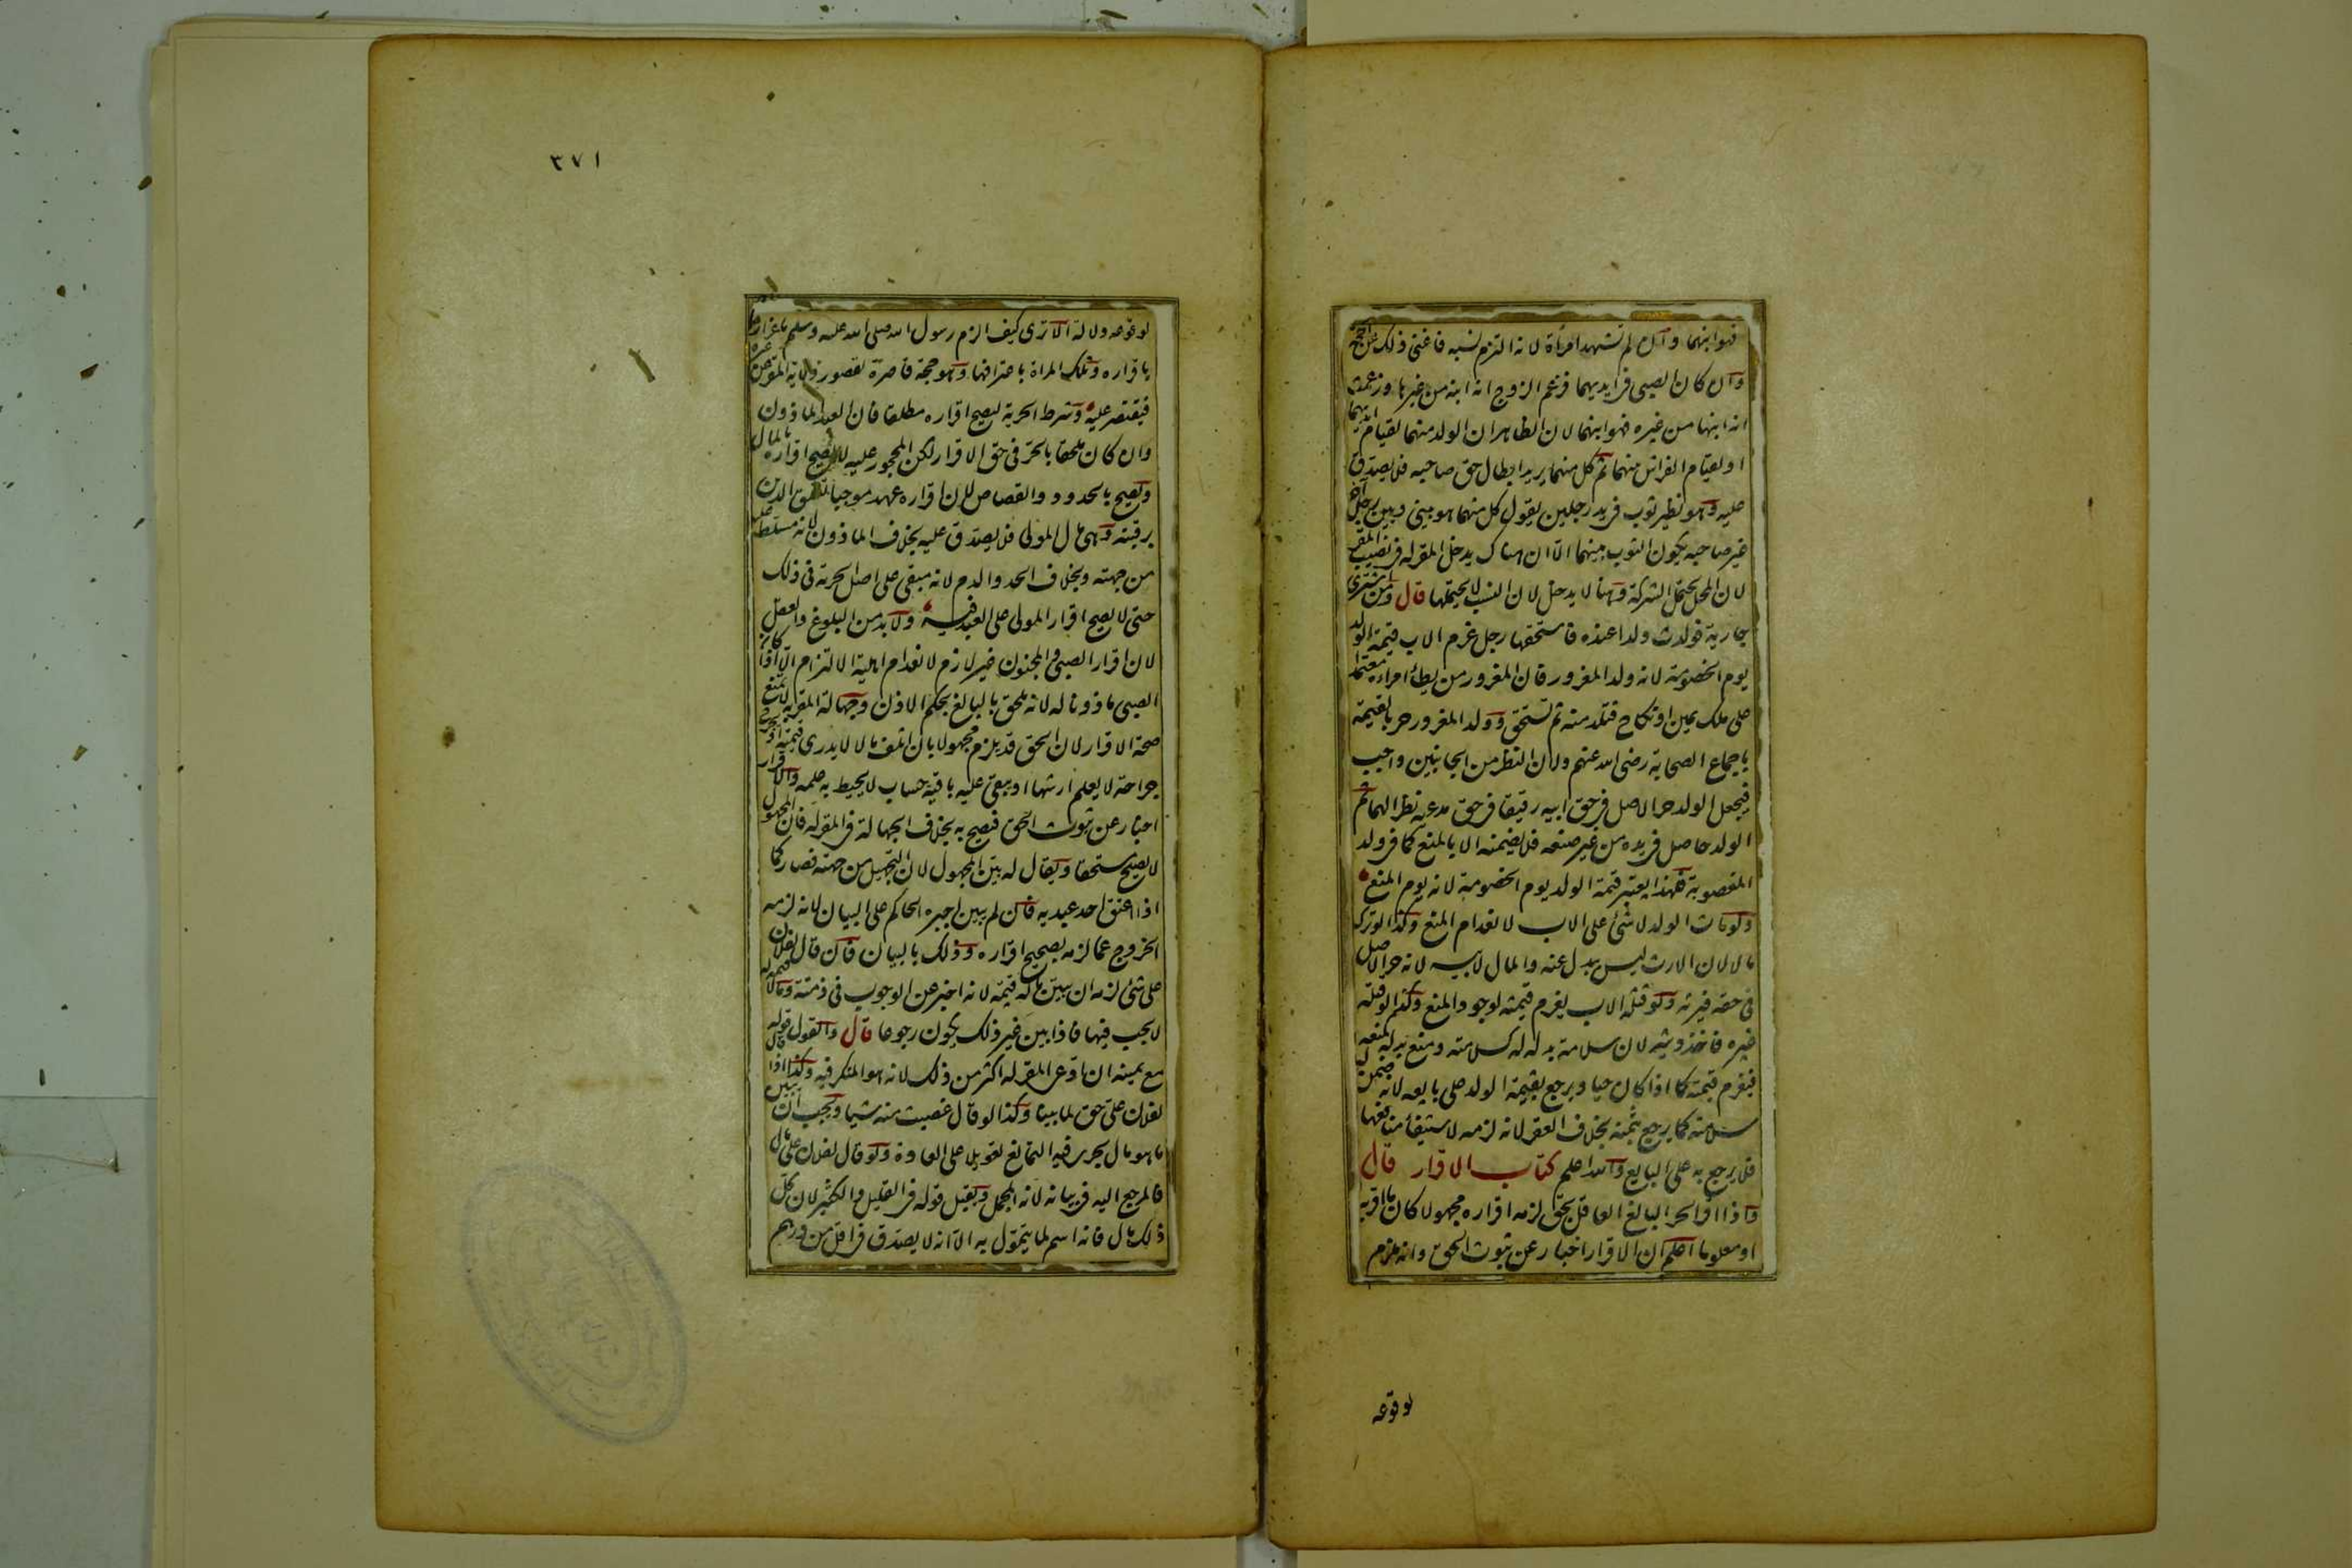 فهو ابنهما وان لم تشهد امرأة لانه التزم نسبه فاغنى ذلك عن الحجة
وان كان الصبي في ايديهما فزعم الزوج انه ابنه من غيرها وزعمت
انه ابنها من غيره فهو ابنهما لان الظاهر ان الولد منهما لقيام ايديهما
او لقيام الفراش بينهما ثم كل منهما يريد ابطال حق صاحبه فلا يصدق
عليه وهو نظير ثوب في يد رجلين يقول كل منهما هو بيني وبين رجل آخر
غير صاحبه يكون الثوب بينهما الا ان هناك يدخل المقر له في نصيب المقر
لان المحل يحتمل الشركة وههنا لا يدخل لان النسب لا يحتملها قال ومن اشترى
جارية فولدت ولدا عنده فاستحقها رجل غرم الاب قيمة الولد
يوم الخصومة لانه ولد المغرور فان المغرور من يطأ امرأة معتمدا
على ملك يمين او نكاح فتلد منه ثم تستحق وولد المغرور حر بالقيمة
باجماع الصحابة رضي الله عنهم ولان النظر من الجانبين واجب
فيجعل الولد حر الاصل في حق ابيه رقيقا في حق مدعيه نظرا لهما ثم
الولد حاصل في يده من غير صنعه فلا يضمنه الا بالمنع كما في ولد
المغصوبة فلهذا يعتبر قيمة الولد يوم الخصومة لانه يوم المنع
ولو مات الولد لا شئ على الاب لانعدام المنع وكذا لو ترك
مالا لان الارث ليس ببدل عنه والمال لابيه لانه حر الاصل
في حقه فيرثه ولو قتله الاب يغرم قيمته لوجود المنع وكذا لو قتله
غيره فاخذ ديته لان سلامة بدله له كسلامته ومنع بدله كمنعه
فيغرم قيمته كما اذا كان حيا ويرجع بقيمة الولد على بايعه لانه ضمن له
سلامته كما يرجع بثمنه بخلاف العقر لانه لزمه لاستيفاء منافعها
فلا يرجع به على البايع والله اعلم كتاب الاقرار قال
واذا اقر الحر البالغ العاقل بحق لزمه اقراره مجهولا كان ما اقر به
او معلوما اعلم ان الاقرار اخبار عن ثبوت الحق وانه ملزم
لوقوعه
٣٧١
لوقوعه دلالة الا ترى كيف الزم رسول الله صلى الله عليه وسلم ماعزا
باقراره وتلك المراة باعترافها وهو حجة قاصرة لقصور ولاية المقر عن غيره
فيقتصر عليه وشرط الحرية ليصح اقراره مطلقا فان العبد الماذون
وان كان ملحقا بالحر في حق الاقرار لكن المحجور عليه لا يصح اقراره بالمال
ويصح بالحدود والقصاص لان اقراره عهد موجبا لتعلق الدين
برقبته وهي مال المولى فلا يصدق عليه بخلاف الماذون لانه مسلط عليه
من جهته وبخلاف الحد والدم لانه مبقى على اصل الحرية في ذلك
حتى لا يصح اقرار المولى على العبد فيه ولا بد من البلوغ والعقل
لان اقرار الصبي والمجنون غير لازم لانعدام اهلية الالتزام الا اذا كان
الصبي ماذونا له لانه ملحق بالبالغ بحكم الاذن وجهالة المقر به لا يمنع
صحة الاقرار لان الحق قد يلزم مجهولا بان اتلف مالا لا يدري قيمته او يجرح
جراحة لا يعلم ارشها او يبقى عليه باقية حساب لا يحيط به علمه والاقرار
اخبار عن ثبوت الحق فيصح به بخلاف الجهالة في المقر له فان المجهول
لا يصح مستحقا ويقال له بين المجهول لان التجهيل من جهته فصار كما
اذا اعتق احد عبديه فان لم يبين اجبره الحاكم على البيان لانه لزمه
الخروج عما لزمه بصحيح اقراره وذلك بالبيان فان قال لفلان
على شئ لزمه ان يبين ما له قيمة لانه اخبر عن الوجوب في ذمته وما لا قيمة له
لا يجب فيها فاذا بين غير ذلك يكون رجوعا قال والقول قوله
مع يمينه ان ادعى المقر له اكثر من ذلك لانه هو المنكر فيه وكذا اذا قال
لفلان على حق لما بينا وكذا لو قال غصبت منه شيئا ويجب ان يبين
ما هو مال يجري فيه التمانع تعويلا على العادة ولو قال لفلان على مال
فالمرجع اليه في بيانه لانه المجمل ويقبل قوله في القليل والكثير لان كل
ذلك مال فانه اسم لما يتمول به الا انه لا يصدق في اقل من درهم